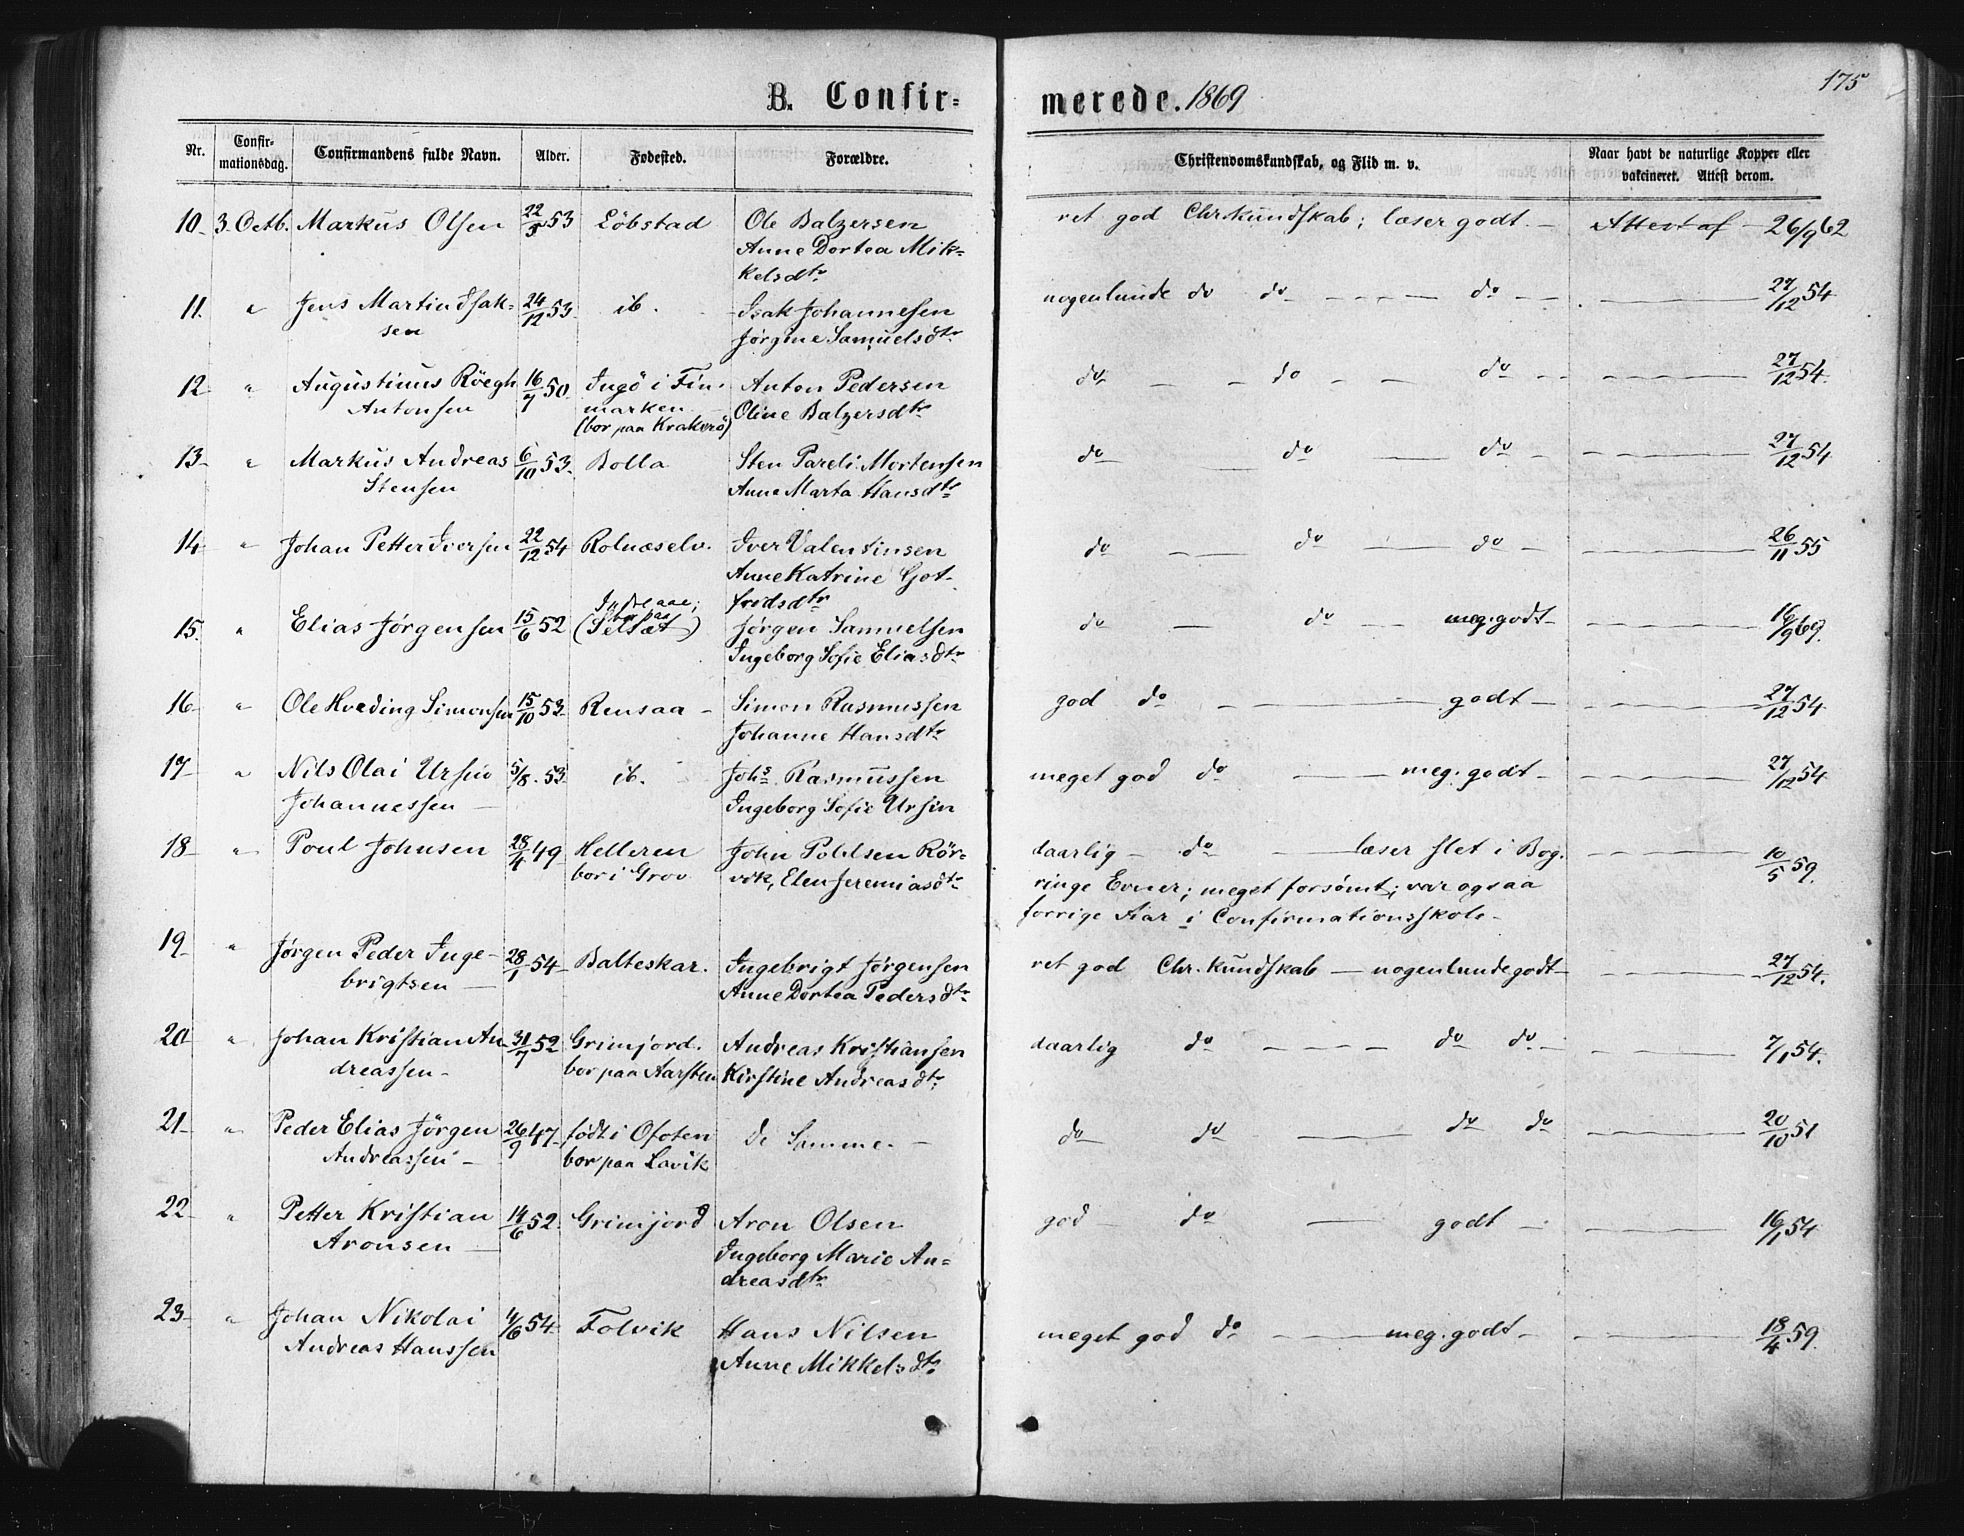 175
B. Confirmerede. 1869
Nr. Confirmationsdag. Confirmandens fulde Navn. Alder. Fødested. Forældre. Christendomskundskab, og Flid m. v. Naar havt de naturlige Kopper eller vakcineret. Attest derom.
10 3. Octb. Markus Olsen 22/3 53 Löbstad Ole Balzersen ret god Chr.kundskab; læser godt. — Attest af — 26/9 62
Anne Dortea Mik-
kelsdtr
11. " Jens Martin Isak- 24/12 53 ib. Isak Johannesen nogenlunde do do — do — 27/12 54
sen Jørgine Samuelsdtr
12 " Augustinus Röegh 16/7 50 Ingö i Fin- Anton Pedersen do — do — do — 27/12 54.
Antonsen marken Oline Balzersdtr
(bor paa Krakerö)
13 " Markus Andreas 6/10 53. Bolla Sten Pareli Mortensen do — do — do — 27/12 54
Stensen Anne Marta Hansdtr
14 " Johan Petter Iversen 22/12 54 Rolnæselv. Iver Valentinsen do — do — do — 26/11 55
Anne Katrine Got-
fridsdtr
15. " Elias Jørgensen 15/6 52 bor paa (Selsæt) Jørgen Samuelsen do — do — meg. godt — 16/9 69.
Ingeborg Sofie Eliasdtr
16 " Ole Hveding Simonsen 15/10 53 Rensaa — Simon Rasmussen god do — godt — 27/12 54
Johanne Hansdtr
17 " Nils Olai Ursin 5/8. 53 ib. Johs. Rasmussen meget god do — meg. godt — 27/12 54
Johannessen — Ingeborg Sofie Ursin
18 " Poul Johnsen 28/4 49 Helleren John Poulsen Rör- daarlig — do — læser slet i Bog. — 10/5 59.
bor i Grov vik, Elen Jeremiasdtr ringe Evner; meget forsömt; var ogsaa
forrige Aar i Confirmationsskole —
19 " Jørgen Peder Inge- 28/1 54 Balteskar. Ingebrigt Jørgensen ret god Chr. kundskab — nogenlunde godt — 27/12 54.
brigtsen — Anne Dortea Pedersdtr
20 " Johan Kristian An- 31/7 52 Grimjord. Andreas Kristiansen daarlig do — do do — 7/1 54.
dreassen — bor paa Aarsten Kirstine Andreasdtr
21 " Peder Elias Jörgen 26/9 47 födt i Ofoten de Samme. — do do — do do — 20/10 51
Andreassen — bor paa Lavik
22 " Petter Kristian 14/6 52 Grimjord Aron Olsen god — do — godt — 16/1 54
Aronsen — Ingeborg Marie An-
dreasdtr
23 " Johan Nikolai 4/6 54 Folvik Hans Nilsen meget god do — meg. godt — 18/4 59.
Andreas Hanssen Anne Mikkelsdtr